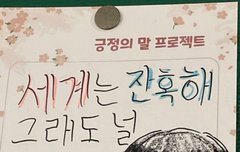 긍정의 말 프로젝트
세계는 잔혹해
그래도 널